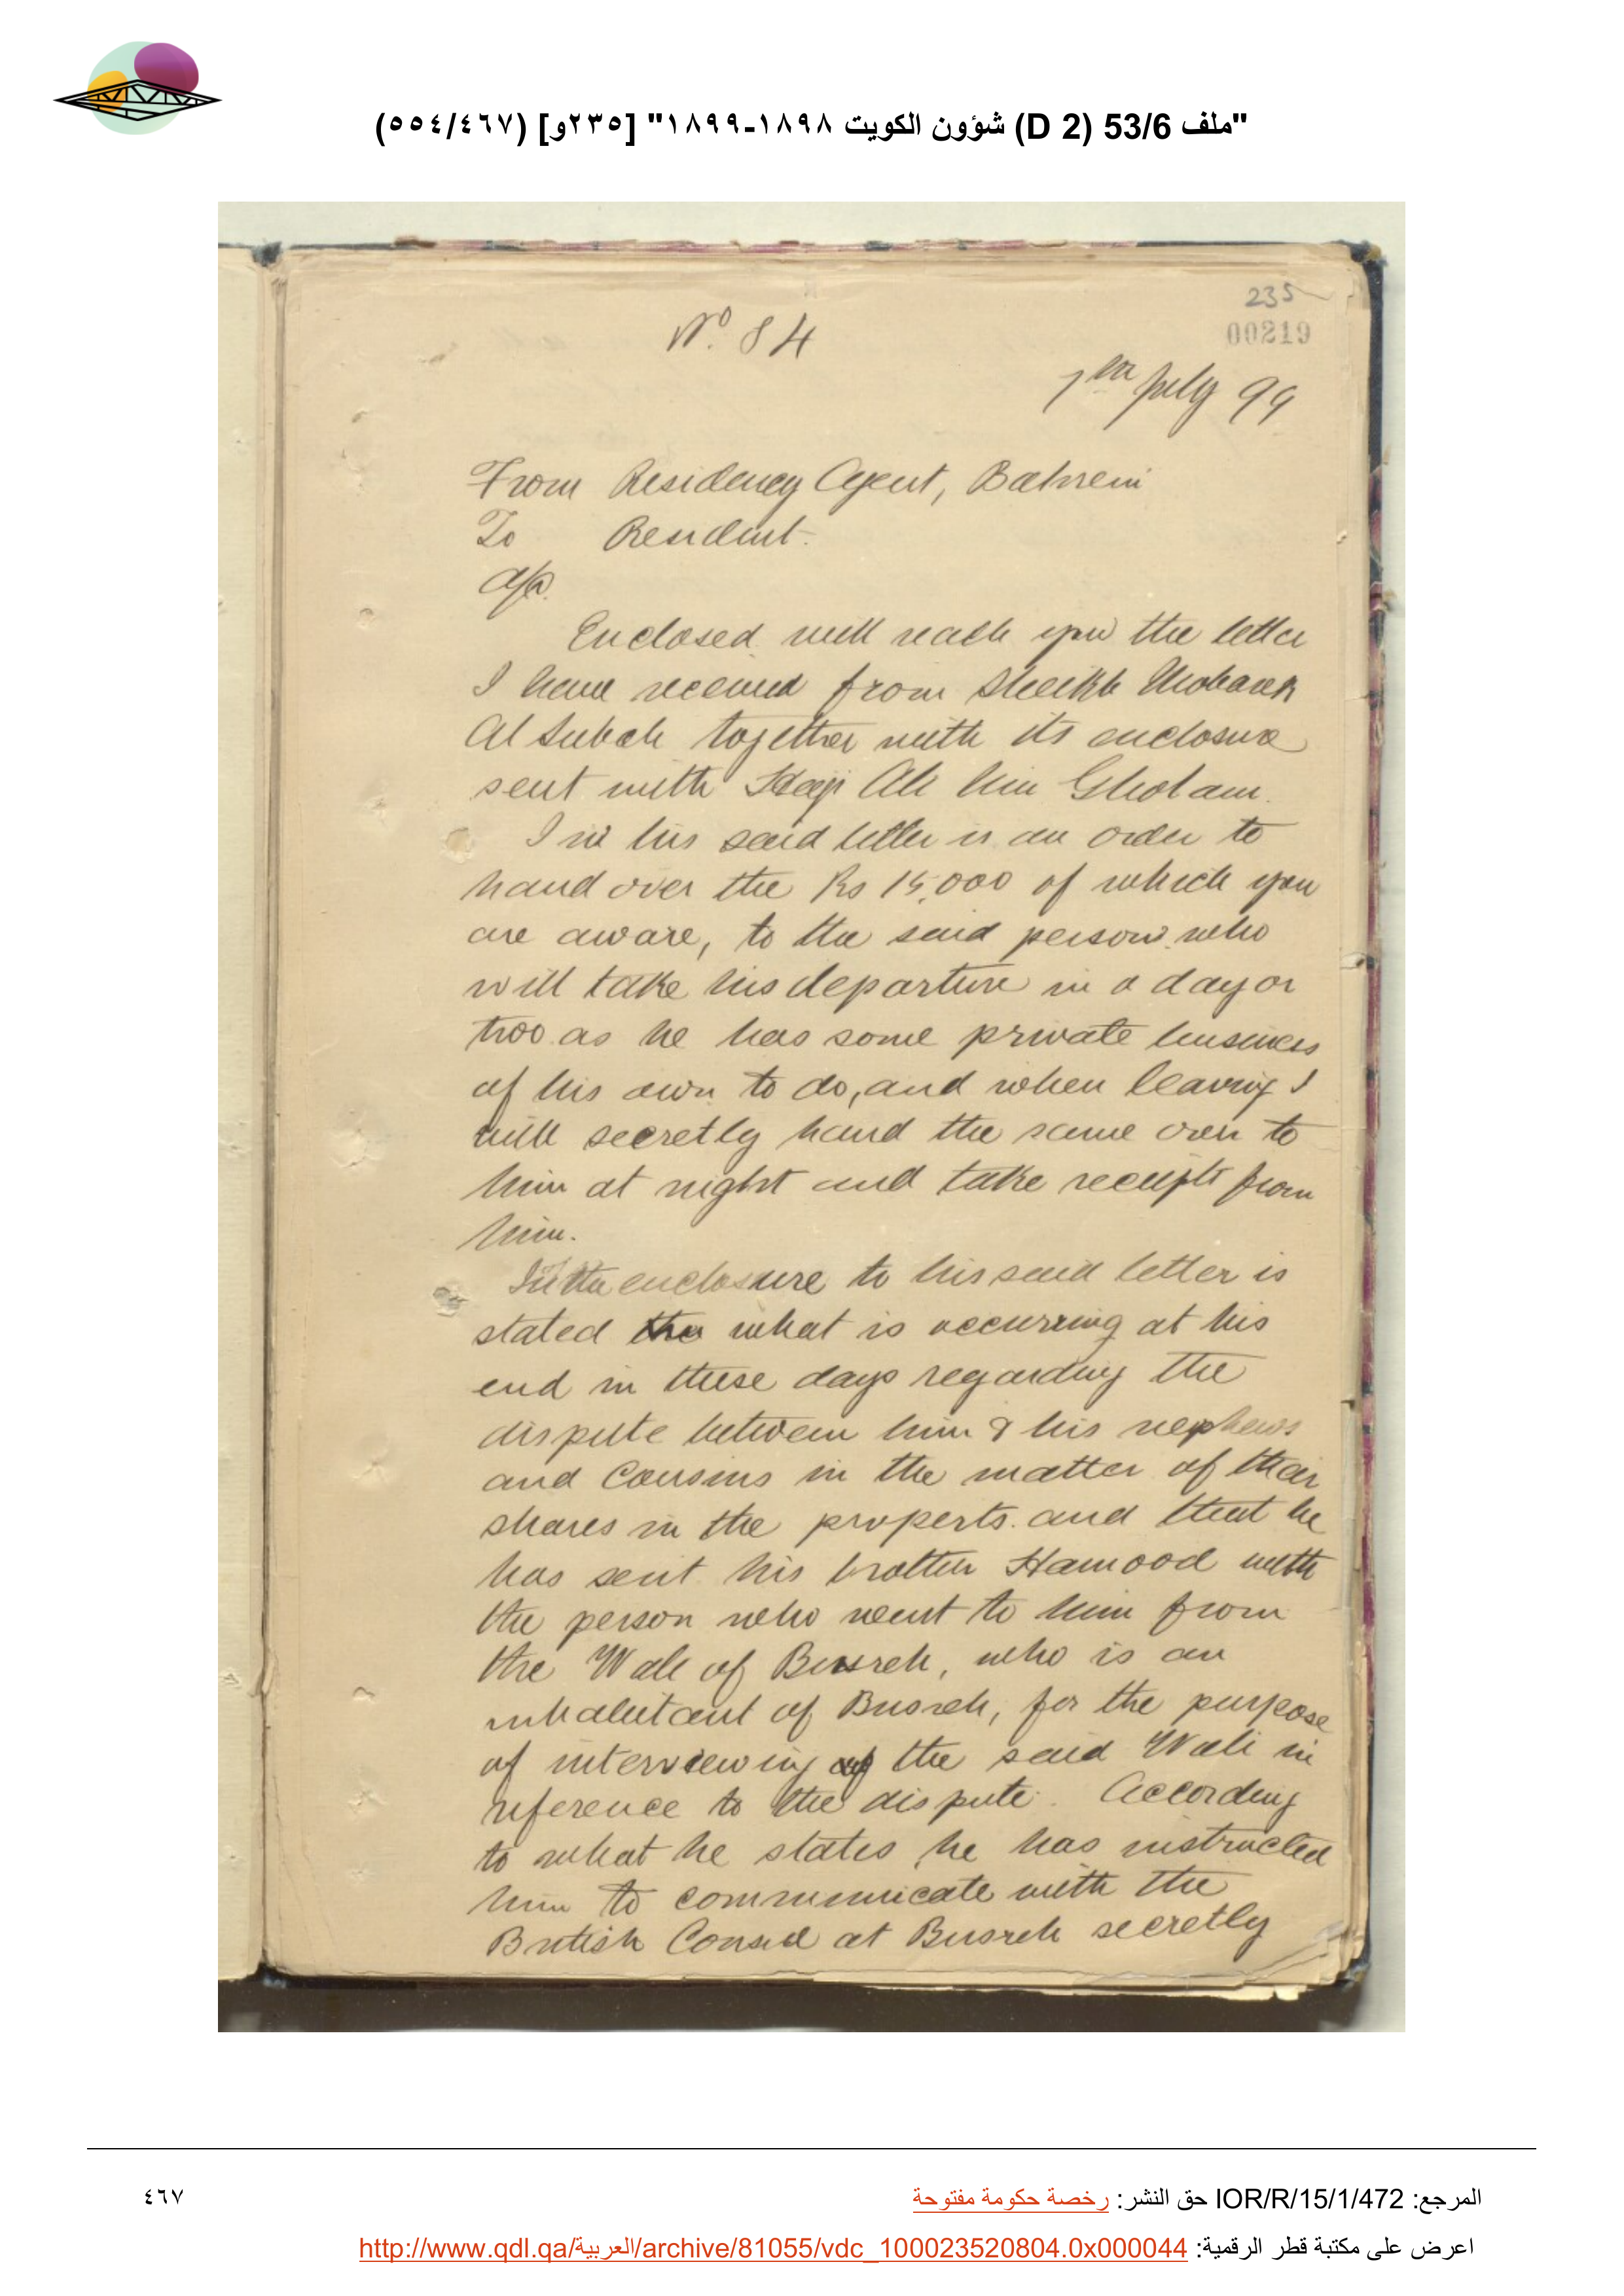 "ملف 53/6 (D 2) شؤون الكويت ١٨٩٨-١٨٩٩" [٢٣٥و] (٥٥٤/٤٦٧)
235
00219
No. 84
7th July 99
From Residency Agent, Bahrein
To Resident.
A/C.
Enclosed will reach you the letter
I have received from Sheikh Mobarek
Al Subah together with its enclosure
sent with Haji Ali bin Gholam.
In his said letter is an order to
hand over the Rs 15,000 of which you
are aware, to the said person who
will take his departure in a day or
two as he has some private business
of his own to do, and when leaving I
will secretly hand the same over to
him at night and take receipt from
him.
In the enclosure to his said letter is
stated the what is occurring at his
end in these days regarding the
dispute between him & his nephews
and Cousins in the matter of their
shares in the property. and that he
has sent his brother Hamood with
the person who went to him from
the Wali of Busreh, who is an
inhabitant of Busreh, for the purpose
of interviewing the said Wali in
reference to the dispute. According
to what he states he has instructed
him to communicate with the
British Consul at Busreh secretly
المرجع: IOR/R/15/1/472 حق النشر: رخصة حكومة مفتوحة
٤٦٧
اعرض على مكتبة قطر الرقمية: http://www.qdl.qa/العربية/archive/81055/vdc_100023520804.0x000044